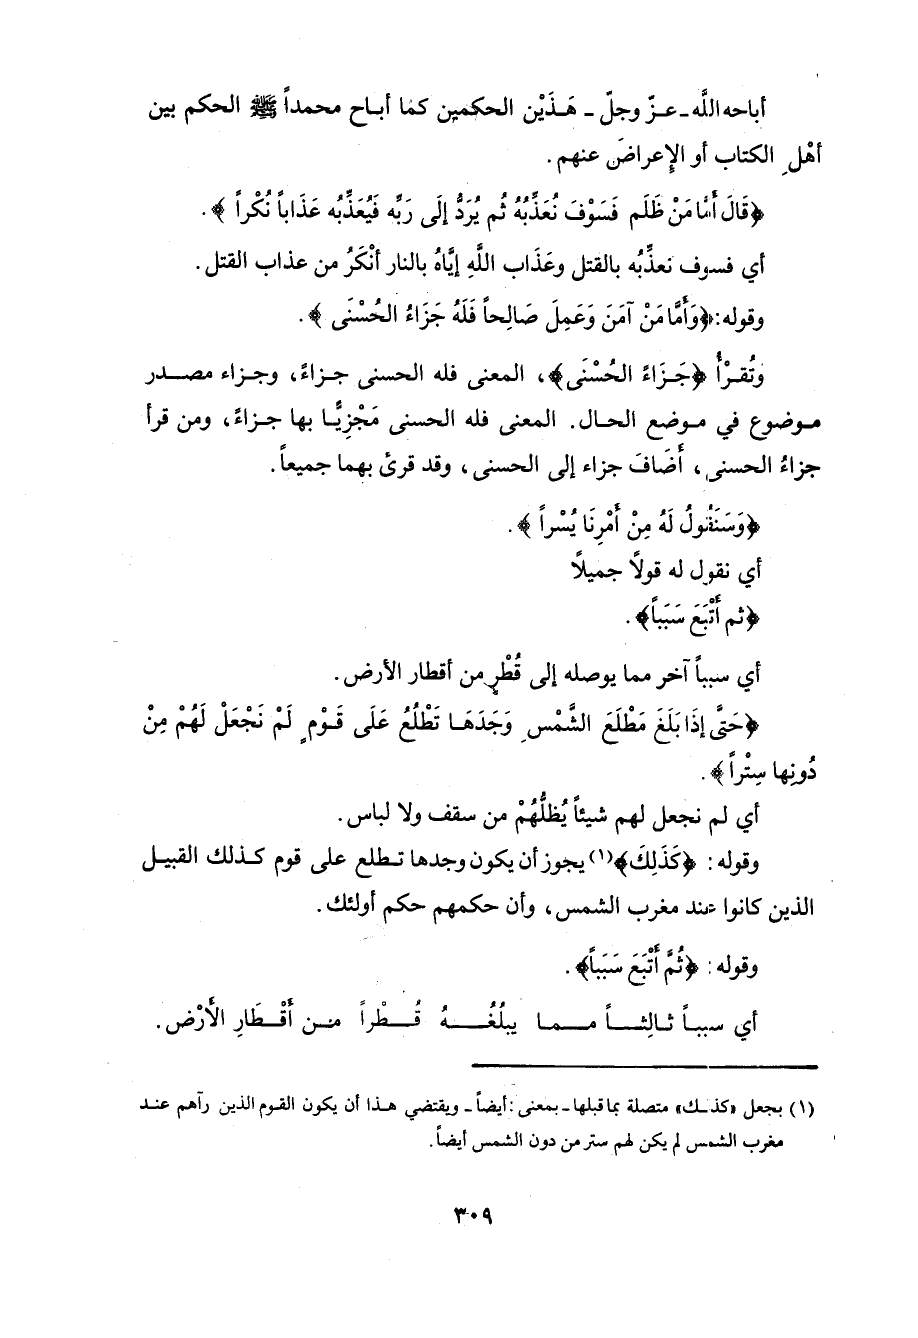 أباحه اللَّه ـ عـزّ وجلّ ـ هَـذَيْن الحكمين كما أبـاح محمداً ﷺ الحكم بين
أهْلِ الكتاب أو الإعراضَ عنهم .
﴿قَالَ أَمَّا مَنْ ظَلَم فَسَوْفَ نُعَذِّبُهُ ثُم يُرَدُّ إلَى رَبِّه فَيُعَذِّبُه عَذَاباً نُكْراً ﴾ .
أي فسوف نعذِّبُه بالقتل وعَذَاب اللَّهِ إيَّاهُ بالنار أنْكَرُ من عذاب القتل .
وقوله: ﴿وَأَمَّا مَنْ آمَنَ وَعَمِلَ صَالِحاً فَلَهُ جَزَاءُ الحُسْنَى ﴾ .
وتُقـرْأُ ﴿جَـزَاءً الحُسْنَى﴾، المعنى فله الحسنى جـزاءً، وجزاء مصـدر
مـوضوع في مـوضع الحـال. المعنى فله الحسنى مَجْزِيًّـا بها جـزاءً، ومن قرأ
جزاءُ الحسنى، أَضَافَ جزاء إلى الحسنى، وقد قرئ بهما جميعاً.
﴿وَسَنَقُولُ لَهُ مِنْ أَمْرِنَا يُسْراً ﴾ .
أي نقول له قولاً جميلاً
﴿ثم أَتْبَعَ سَبَباً﴾ .
أي سبباً آخر مما يوصله إلى قُطْرٍ من أقطار الأرض .
﴿حَتَّى إذَا بَلَغَ مَطْلَعَ الشَّمْسِ وَجَدَهَـا تَطْلُعُ عَلَى قَـوْمٍ لَمْ نَجْعَلْ لَهُمْ مِنْ
دُونِها سِتْراً ﴾ .
أي لم نجعل لهم شيئاً يُظلُّهُمْ من سقف ولا لباس .
وقوله: ﴿كَذَلِكَ﴾(١) يجوز أن يكون وجدها تـطلع على قوم كـذلك القبيل
الذين كانوا عند مغرب الشمس، وأن حكمهم حكم أولئك .
وقوله: ﴿ثُمَّ أَتْبَعَ سَبَباً﴾ .
أي سببـاً ثـالِثـــاً مـــمـا يبلُغُـــهُ قُـــطْراً مـن أَقْـطَارِ الأَرْضِ .
(١) بجعل «كذلـك» متصلة بما قبلها ـ بمعنى: أيضاً ـ ويقتضي هـذا أن يكون القوم الذين رآهم عنـد
مغرب الشمس لم يكن لهم ستر من دون الشمس أيضاً .
٣٠٩